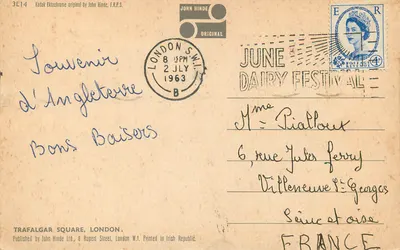 2C14 Kodak Ektachrome original by John Hinde, F.R.P.S.
JOHN HINDE
ORIGINAL
LONDON S.W.1.
8 PM
2 JLY
1963
B
JUNE
DAIRY FESTIVAL
E R
Souvenir
d'Angleterre
Bons Baisers
Mme Pialloux
6, rue Jules ferry
Villeneuve St Georges
Seine et oise
FRANCE
TRAFALGAR SQUARE, LONDON.
Published by John Hinde Ltd., 6 Rupert Street, London W.1. Printed in Irish Republic.